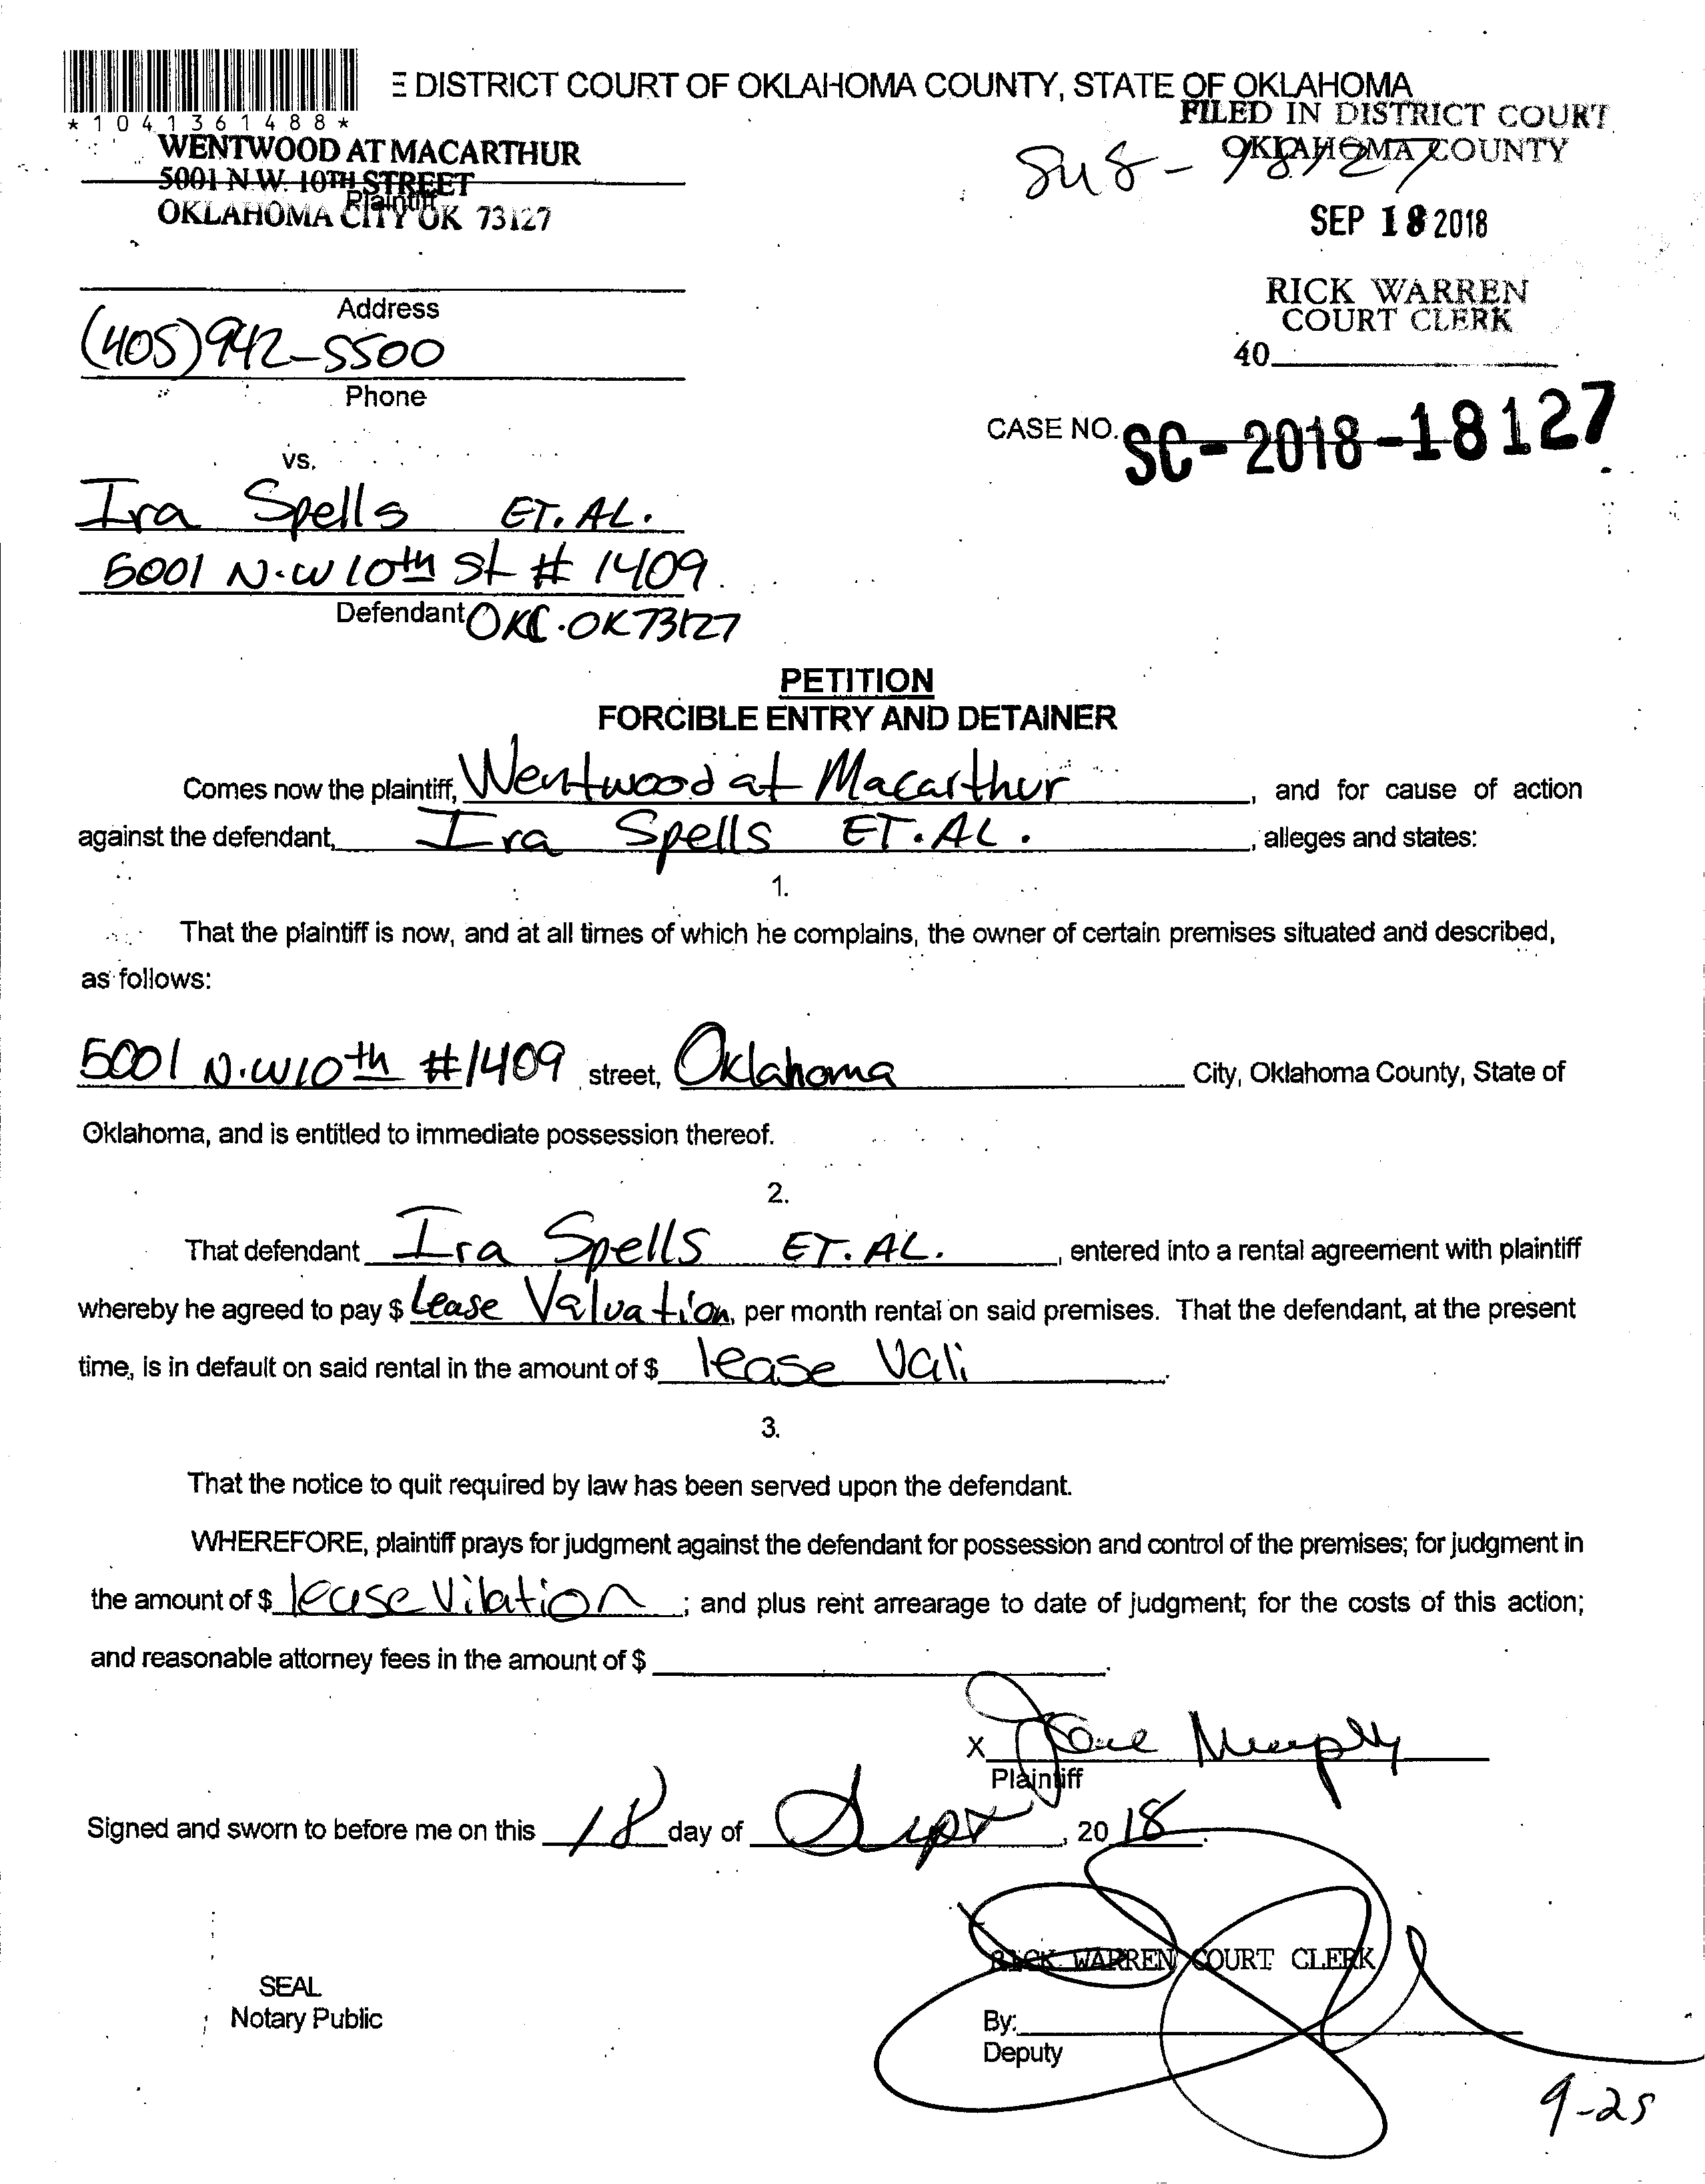 DISTRICT COURT OF OKLAHOMA COUNTY, STATE OF OKLAHOMA
*1041361488*
FILED IN DISTRICT COURT
OKLAHOMA COUNTY
WENTWOOD AT MACARTHUR
5001 N.W. 10TH STREET
Plaintiff
OKLAHOMA CITY OK 73127
SEP 18 2018
RICK WARREN
COURT CLERK
40
Address
(405) 942-5500
Phone
CASE NO. SC-2018-18127
vs.
Ira Spells ET. AL.
5001 N.W 10th St # 1409
Defendant OKC. OK 73127
PETITION
FORCIBLE ENTRY AND DETAINER
Comes now the plaintiff, Wentwood at Macarthur, and for cause of action
against the defendant, Ira Spells ET. AL., alleges and states:
1.
That the plaintiff is now, and at all times of which he complains, the owner of certain premises situated and described,
as follows:
5001 N.W 10th #1409 street, Oklahoma City, Oklahoma County, State of
Oklahoma, and is entitled to immediate possession thereof.
2.
That defendant Ira Spells ET. AL., entered into a rental agreement with plaintiff
whereby he agreed to pay $ Lease Valuation, per month rental on said premises. That the defendant, at the present
time, is in default on said rental in the amount of $ lease Vali.
3.
That the notice to quit required by law has been served upon the defendant.
WHEREFORE, plaintiff prays for judgment against the defendant for possession and control of the premises; for judgment in
the amount of $ lease Vilation; and plus rent arrearage to date of judgment; for the costs of this action;
and reasonable attorney fees in the amount of $
X Murphy
Plaintiff
Signed and sworn to before me on this 18 day of Sept, 2018.
RICK WARREN COURT CLERK
SEAL
Notary Public
By:
Deputy
9-25